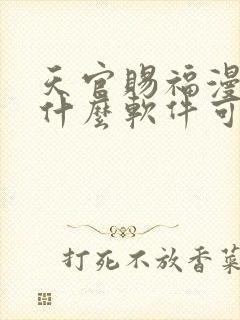 天官賜福漫
什麼軟件可
打死不放香菜